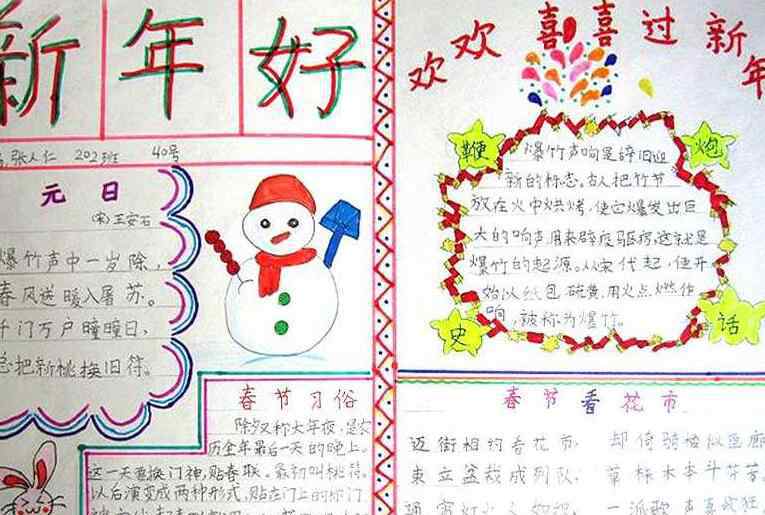 新年好
张人仁 202班 40号
元日
(宋)王安石
爆竹声中一岁除,
春风送暖入屠苏。
千门万户曈曈日,
总把新桃换旧符。
春节习俗
除夕又称大年夜,是农
历全年最后一天的晚上。
这一天要换门神,贴春联。最初叫桃符。
以后演变成两种形式,贴在门上的称门
欢欢喜喜过新年
鞭炮史话
爆竹声响是辞旧迎
新的标志。古人把竹节
放在火中烘烤,使它爆发出巨
大的响声用来辟疫驱邪,这就是
爆竹的起源。从宋代起,便开
始以纸包硫黄,用火点燃作
响,被称为爆竹。
春节看花市
迈街相约看花市,却倚骑楼似画廊
束立盆栽成列队,草标木本斗芬芳
通宵灯火人如织,一派歌声喜欲狂